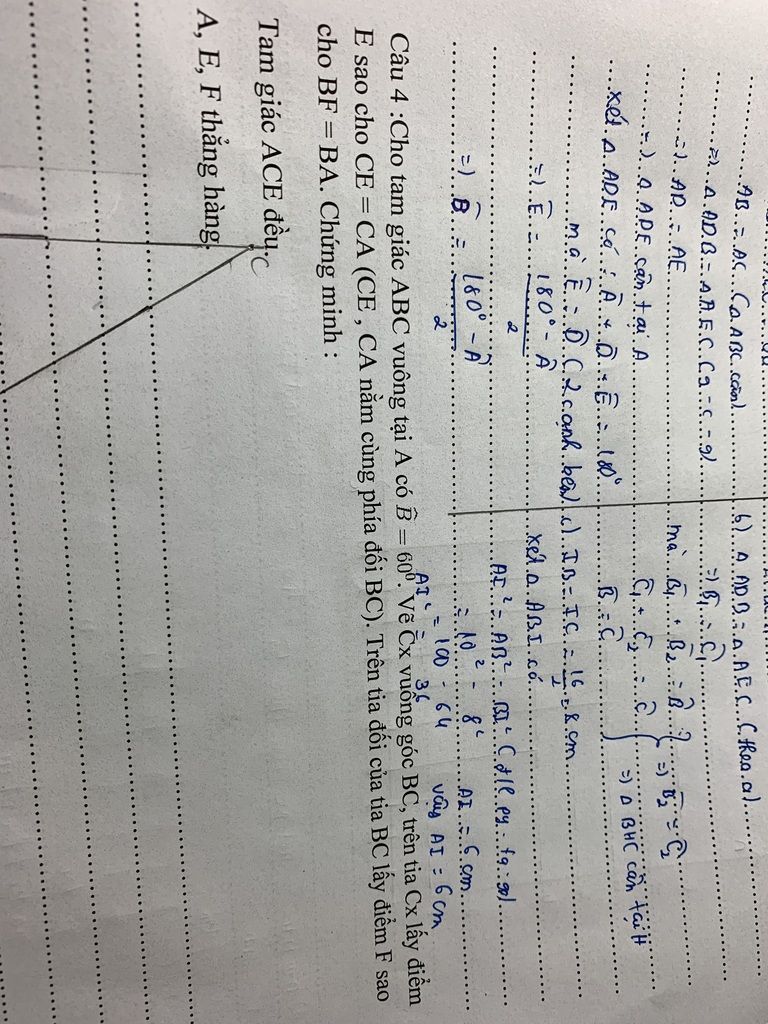 AB = AC (Δ ABC cân)
=> Δ ADB = Δ AEC (g-c-g)
=> AD = AE
=> Δ ADE cân tại A
xét Δ ADE có : Â + D̂ + Ê = 180°
mà Ê = D̂ (2 cạnh bên)
=> Ê = 180° - Â
2
=> B̂ = 180° - Â
2
b) Δ ADB = Δ AEC (theo a)
=> B̂₁ = Ĉ₁
mà B̂₁ + B̂₂ = B̂ } => B̂₂ = Ĉ₂
Ĉ₁ + Ĉ₂ = Ĉ
B̂ = Ĉ => Δ BHC cân tại H
c) IB = IC = 16 = 8 cm
2
xét Δ ABI có
AI² = AB² - BI² (đ/l py-ta-go)
= 10² - 8² AI = 6 cm
AI² = 100 - 64 vậy AI = 6 cm
36
Câu 4 :Cho tam giác ABC vuông tại A có B̂ = 60⁰. Vẽ Cx vuông góc BC, trên tia Cx lấy điểm
E sao cho CE = CA (CE , CA nằm cùng phía đối BC). Trên tia đối của tia BC lấy điểm F sao
cho BF = BA. Chứng minh :
Tam giác ACE đều.
A, E, F thẳng hàng.
C